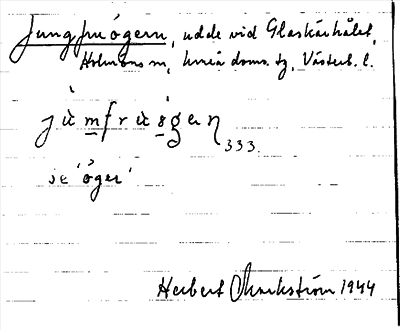 Jungfruögern, udde vid Glaskärhålet,
Holmöns sn, Umeå doms. tg, Västerb. l.
jùmfrùøgen
333.
se 'öger'
Herbert Markström 1944